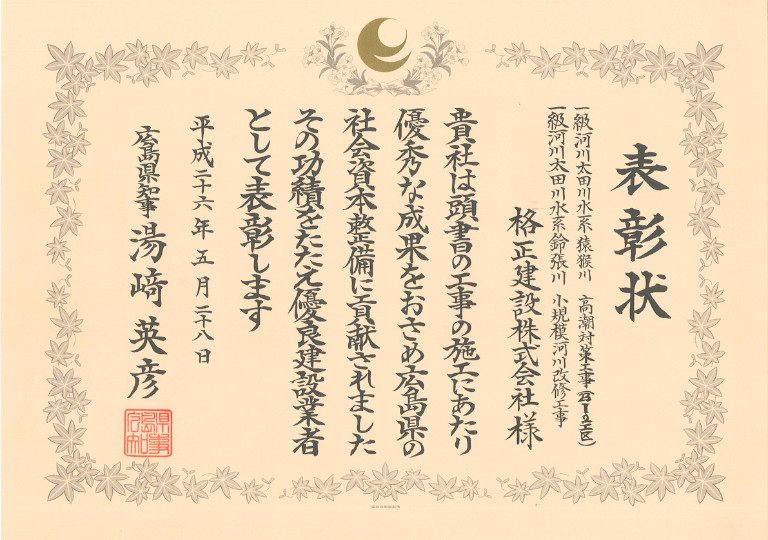 表彰状
一級河川太田川水系 猿猴川 高潮対策工事
一級河川太田川水系鈴張川 小規模河川改修工事
格正建設株式会社 様
貴社は頭書の工事の施工にあたり
優秀な成果をおさめ広島県の
社会資本整備に貢献されました
その功績をたたえ優良建設業者
として表彰します
平成二十六年五月二十八日
広島県知事 湯﨑英彦